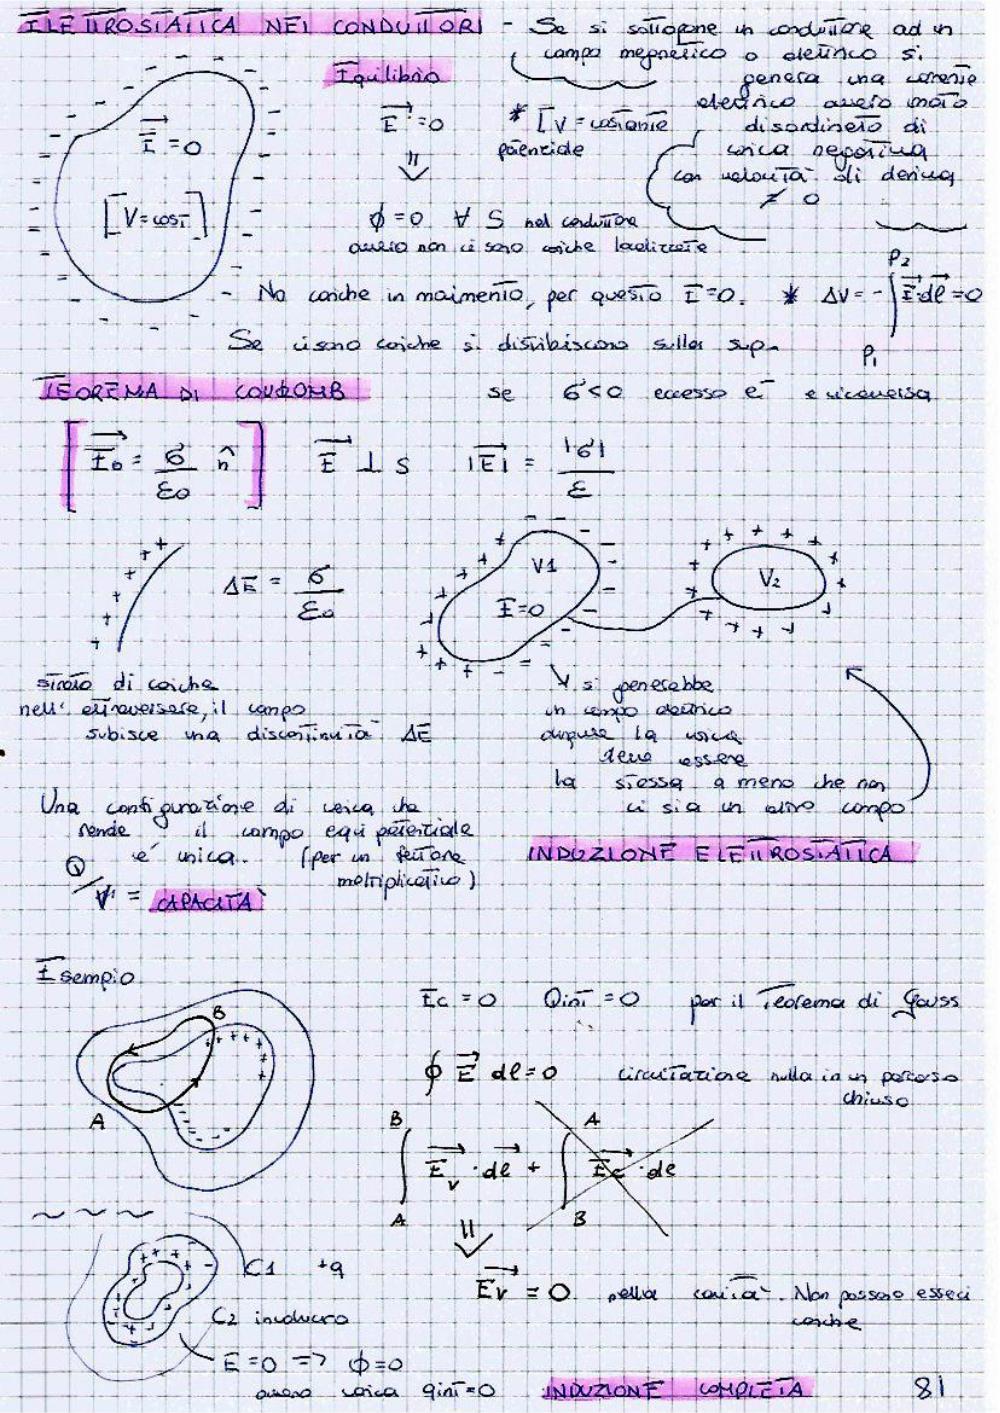 ELETTROSTATICA NEI CONDUTTORI - Se si sottopone un conduttore ad un
campo magnetico o elettrico si
genera una corrente
elettrico ovvero moto
disordinato di
carica negativa
con velocità di deriva
≠ 0
Equilibrio
E = 0
[V = cost]
E = 0
* [V = costante
potenziale
ϕ = 0 ∀ S nel conduttore
ovvero non ci sono cariche localizzate
- No cariche in movimento, per questo E = 0. * ΔV = - ∫ E·dl = 0
P2
P1
Se ci sono cariche si distribiscono sulla sup.
TEOREMA DI COULOMB se σ<0 eccesso e⁻ e viceversa
[E0 = σ/ε0 n̂] E ⊥ S |E| = |σ|/ε
ΔE = σ/ε0
V1
E = 0
V2
strato di cariche
nell'attraversare, il campo
subisce una discontinuità ΔE
si generebbe
un campo elettrico
dunque la carica
deve essere
la stessa a meno che non
ci sia un altro campo
Una configurazione di carica che
rende il campo equipotenziale
è unica. (per un fattore
moltiplicativo)
Q/V = CAPACITÀ
INDUZIONE ELETTROSTATICA
Esempio
A
B
Ec = 0 Qint = 0 per il Teorema di Gauss
∮ E dl = 0 circuitazione nulla in un percorso
chiuso
B A
∫ Ev · dl + ∫ Ec · dl
A B
⇓
Ev = 0 nella cavità. Non possono esserci
cariche
C1 +q
C2 involucro
E = 0 => ϕ = 0
ovvero carica qint = 0 INDUZIONE COMPLETA 81